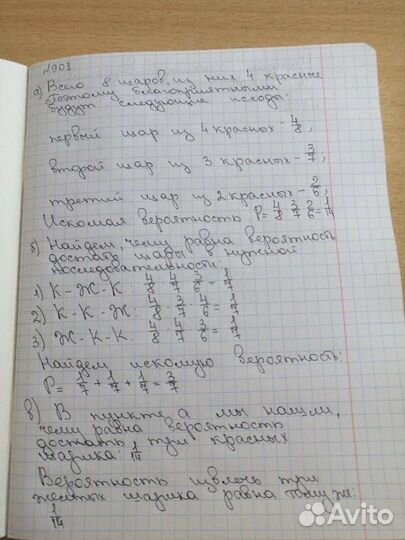 N903
а) Всего 8 шаров, из них 4 красные
Поэтому благоприятными
будут следующие исходы:
первый шар из 4 красных - 4/8;
второй шар из 3 красных - 3/7;
третий шар из 2 красных - 2/6;
Искомая вероятность P = 4/8 · 3/7 · 2/6 = 1/14
б) Найдем, чему равна вероятность
достать шары в нужной
последовательности:
1) К-Ж-К: 4/8 4/7 3/6 = 1/7
2) К-К-Ж: 4/8 3/7 4/6 = 1/7
3) Ж-К-К: 4/8 4/7 3/6 = 1/7
Найдем искомую вероятность:
P = 1/7 + 1/7 + 1/7 = 3/7
в) В пункте а мы нашли,
чему равна вероятность
достать три красных
шарика: 1/14
Вероятность извлечь три
желтых шарика равна тому же:
1/14
Avito